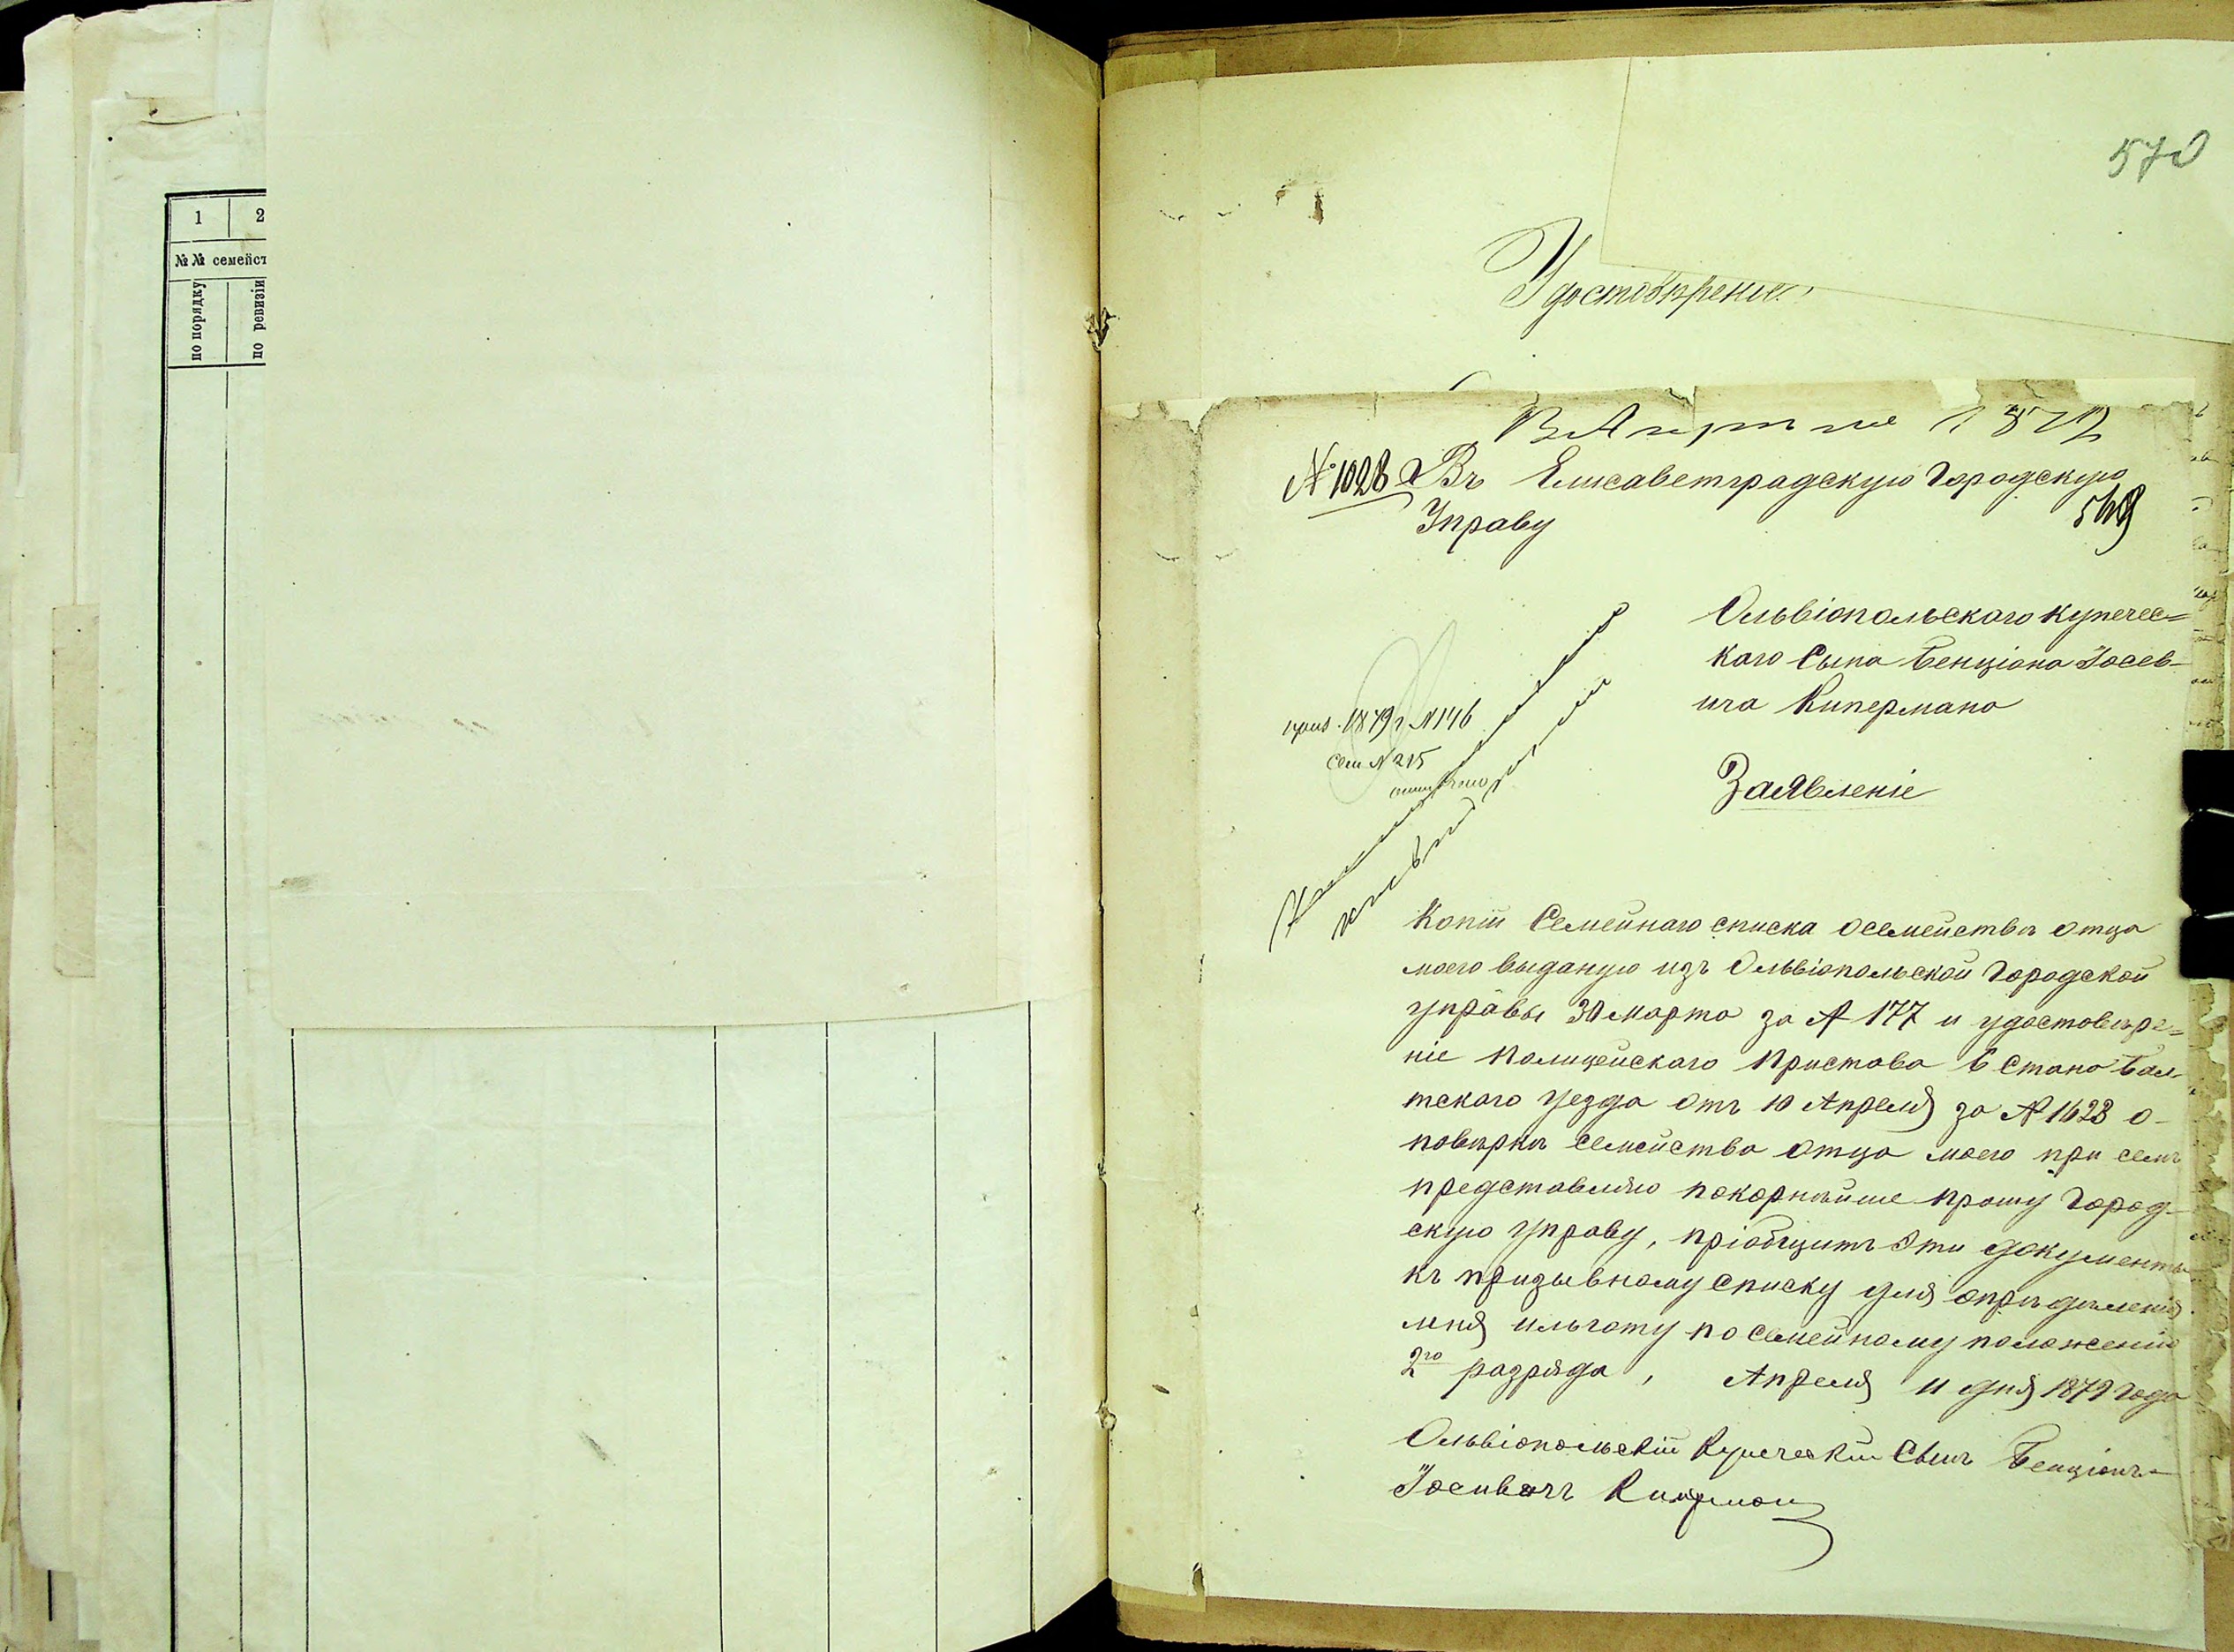 1 2
№№ семейст
по порядку
по ревизіи
570
Удостовѣреніе.
№ 1028 Въ Елисаветградскую Городскую
569
Управу
Ольвіопольскаго купечес=
каго Сына Бенціона Іосев-
ича Кипермана
приз. 1879 г № 146
Сем № 215
Заявленіе
Копіи Семейнаго списка осемействѣ отца
моего выданую изъ Ольвіопольской Городской
управы 30 Марта за № 177 и удостовѣре=
ніе Полицейскаго Пристава 6 Стана Бал-
тскаго уезда отъ 10 Апреля за № 1628 о-
повѣркѣ семейства отца моего при семъ
представляю покорнѣйше прошу Город-
скую Управу, пріобщить эти документы
къ призывному списку для опрѣдѣленія
мня ильготу по семейному положенію
2го разряда, Апреля 11 дня 1879 года
Ольвіопольскій Купеческій Сынъ Бенціонъ
Іосивичъ Киперман